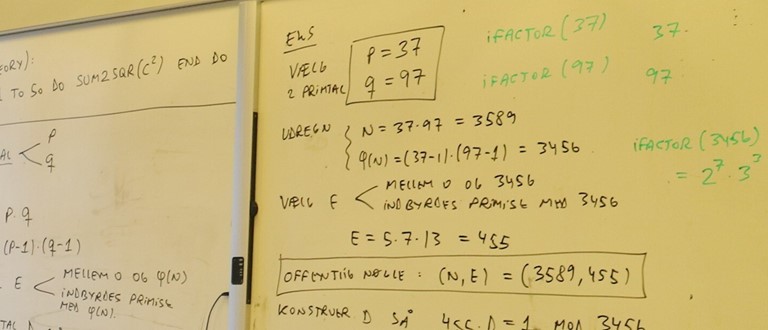 EORY):
TO 50 DO SUM2SQR(C²) END DO
AL < P
q
P.q
(P-1)·(q-1)
E < MELLEM 0 OG φ(N)
INDBYRDES PRIMISK
MED φ(N).
EKS
VÆLG
2 PRIMTAL
P = 37
q = 97
iFACTOR(37) 37.
iFACTOR(97) 97
UDREGN { N = 37·97 = 3589
φ(N) = (37-1)·(97-1) = 3456
iFACTOR(3456)
= 2⁷·3³
VÆLG E < MELLEM 0 OG 3456
INDBYRDES PRIMISK MED 3456
E = 5·7·13 = 455
OFFENTLIG NØGLE : (N,E) = (3589,455)
KONSTRUER D SÅ 455·D = 1 MOD 3456